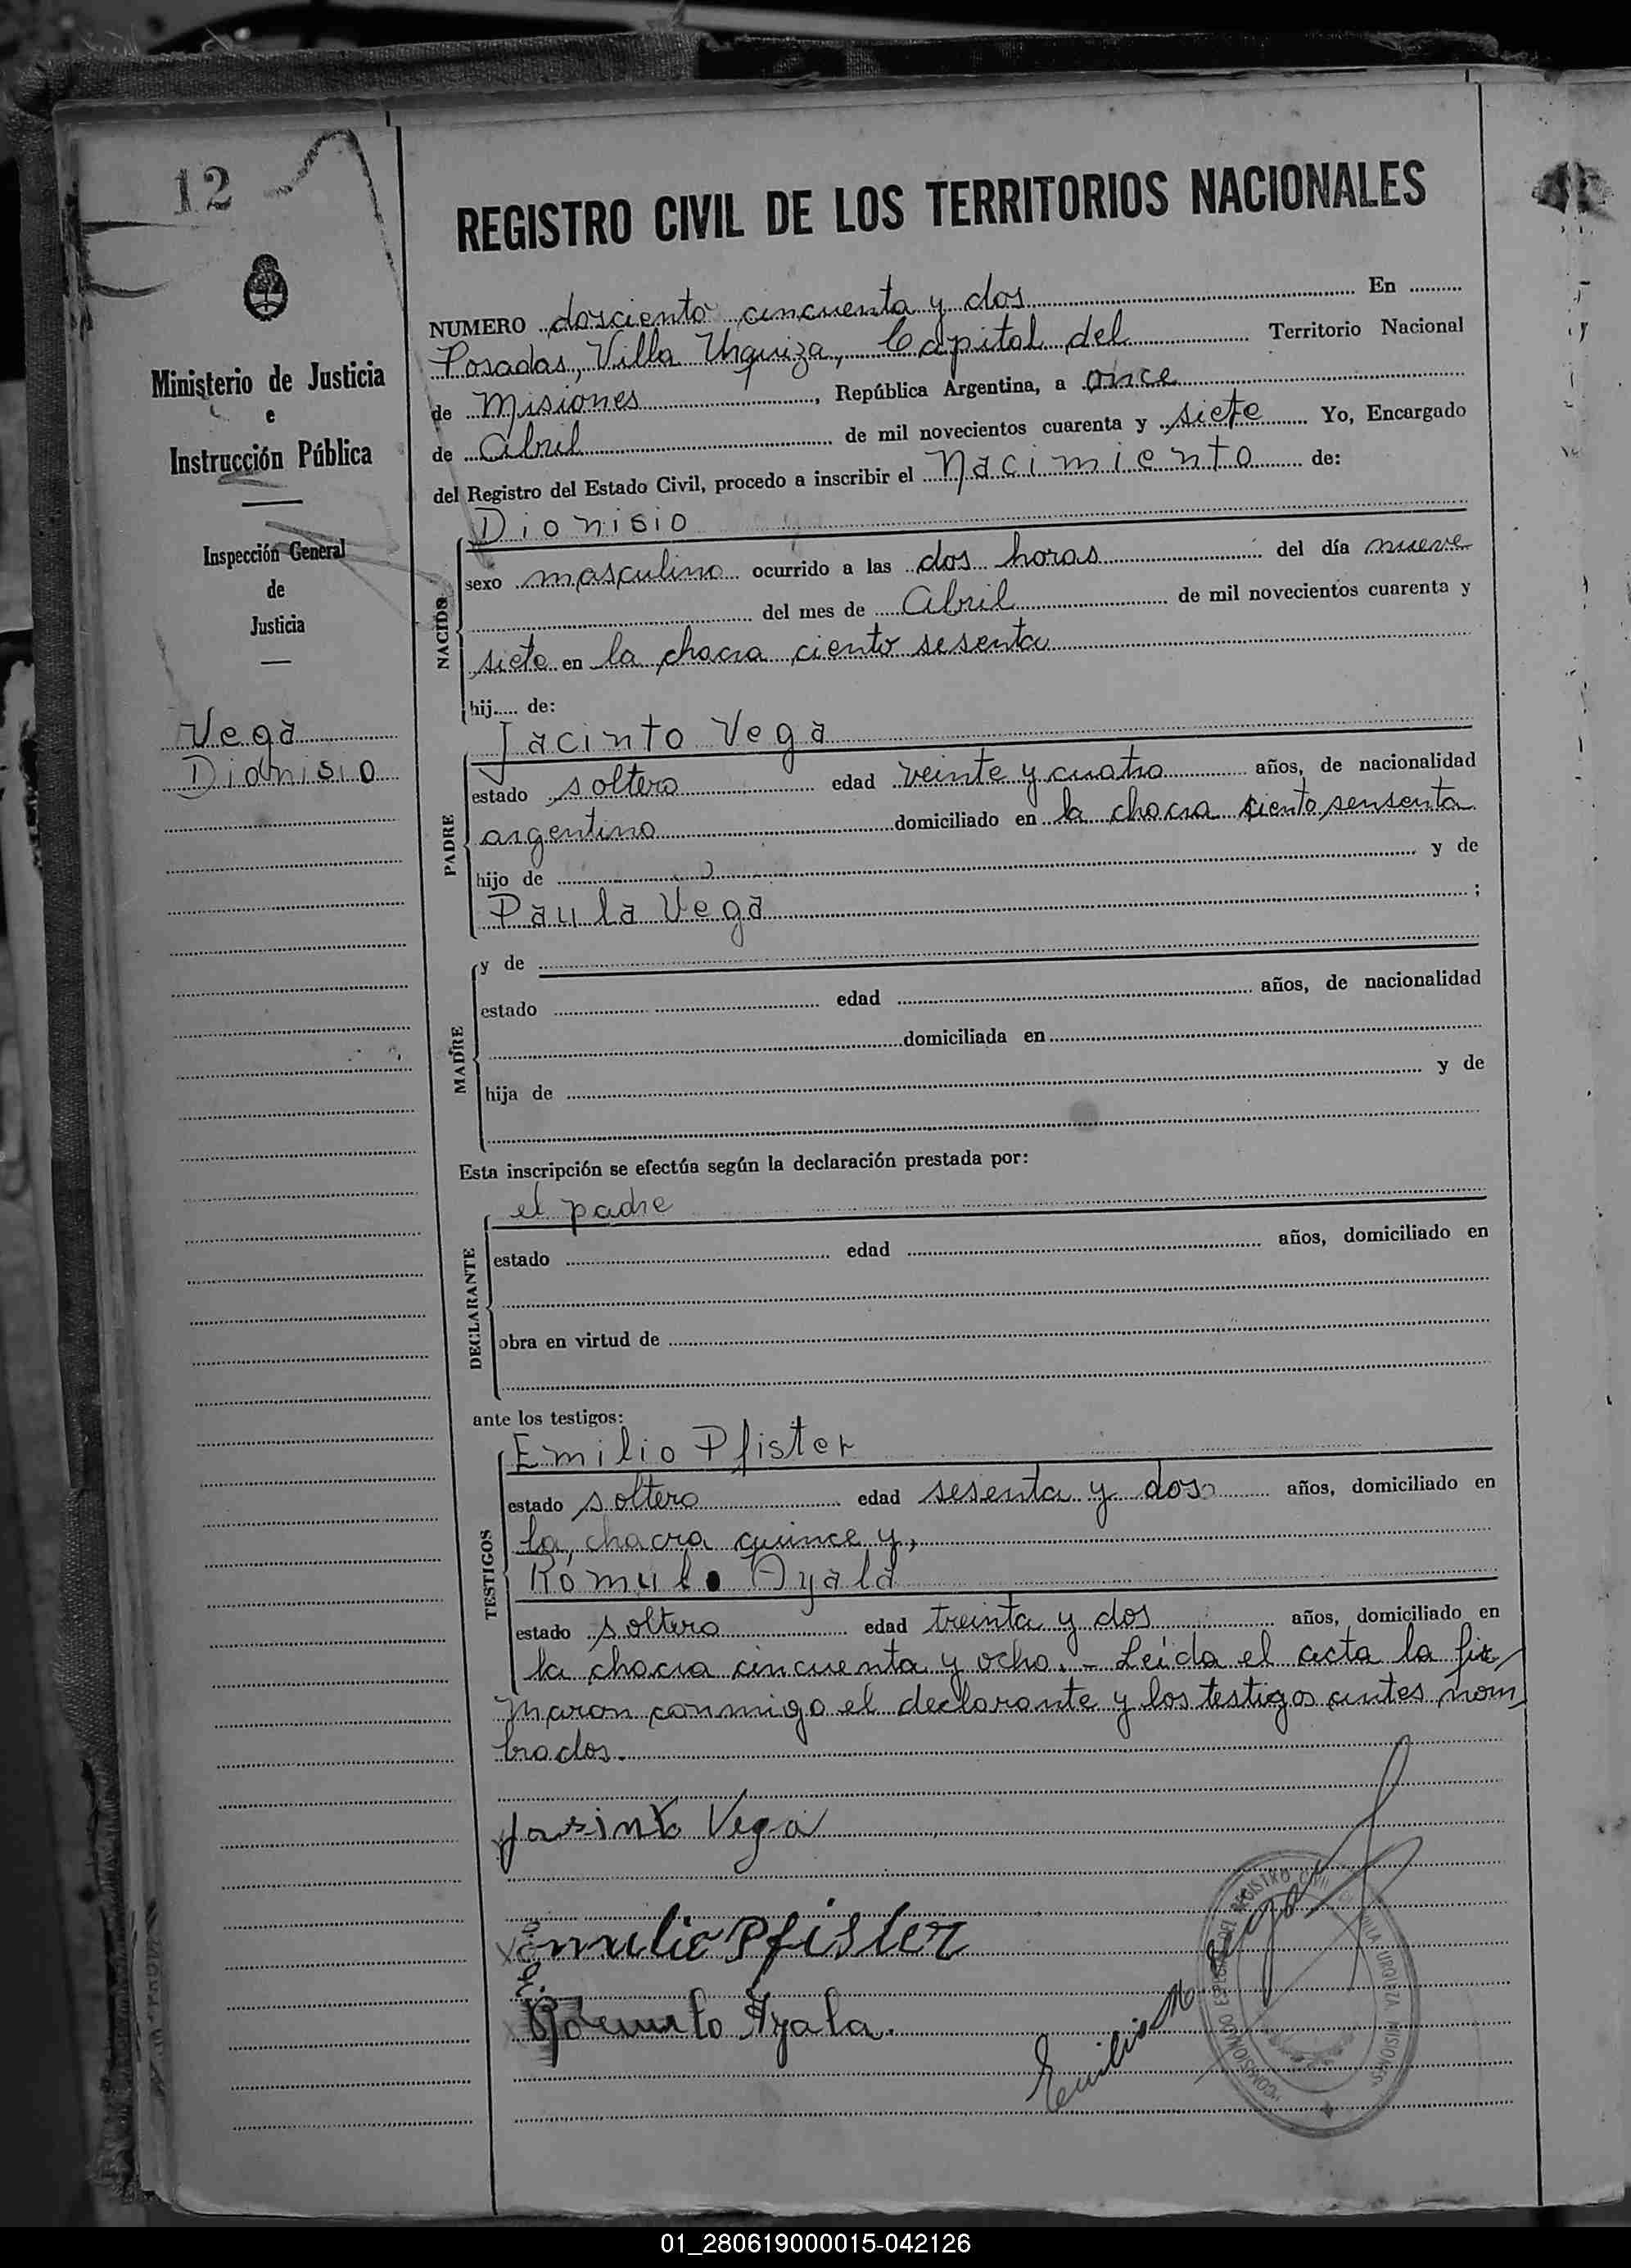 12
Ministerio de Justicia
e
Instrucción Pública
Inspección General
de
Justicia
Vega
Dionisio
REGISTRO CIVIL DE LOS TERRITORIOS NACIONALES
NUMERO dosciento cincuenta y dos En
Posadas, Villa Urquiza, Capital del Territorio Nacional
de Misiones, República Argentina, a once
de Abril de mil novecientos cuarenta y siete Yo, Encargado
del Registro del Estado Civil, procedo a inscribir el Nacimiento de:
NACIDO
Dionisio
sexo masculino ocurrido a las dos horas del día nueve
del mes de Abril de mil novecientos cuarenta y
siete en la chacra ciento sesenta
hij de:
PADRE
Jacinto Vega
estado soltero edad veinte y cuatro años, de nacionalidad
argentino domiciliado en la chacra ciento sensenta
hijo de y de
Paula Vega ;
MADRE
y de
estado edad años, de nacionalidad
domiciliada en
hija de y de
Esta inscripción se efectúa según la declaración prestada por:
DECLARANTE
el padre
estado edad años, domiciliado en
obra en virtud de
ante los testigos:
TESTIGOS
Emilio Pfister
estado soltero edad sesenta y dos años, domiciliado en
la, chacra quince y,
Romulo Ayala
estado soltero edad treinta y dos años, domiciliado en
la chacra cincuenta y ocho. - Leída el acta la fir
maron conmigo el declarante y los testigos antes nom
brados.
Jasinto Vega
Emilio Pfister
Romulo Ayala.
REGISTRO CIVIL VILLA URQUIZA MISIONES
01_280619000015-042126